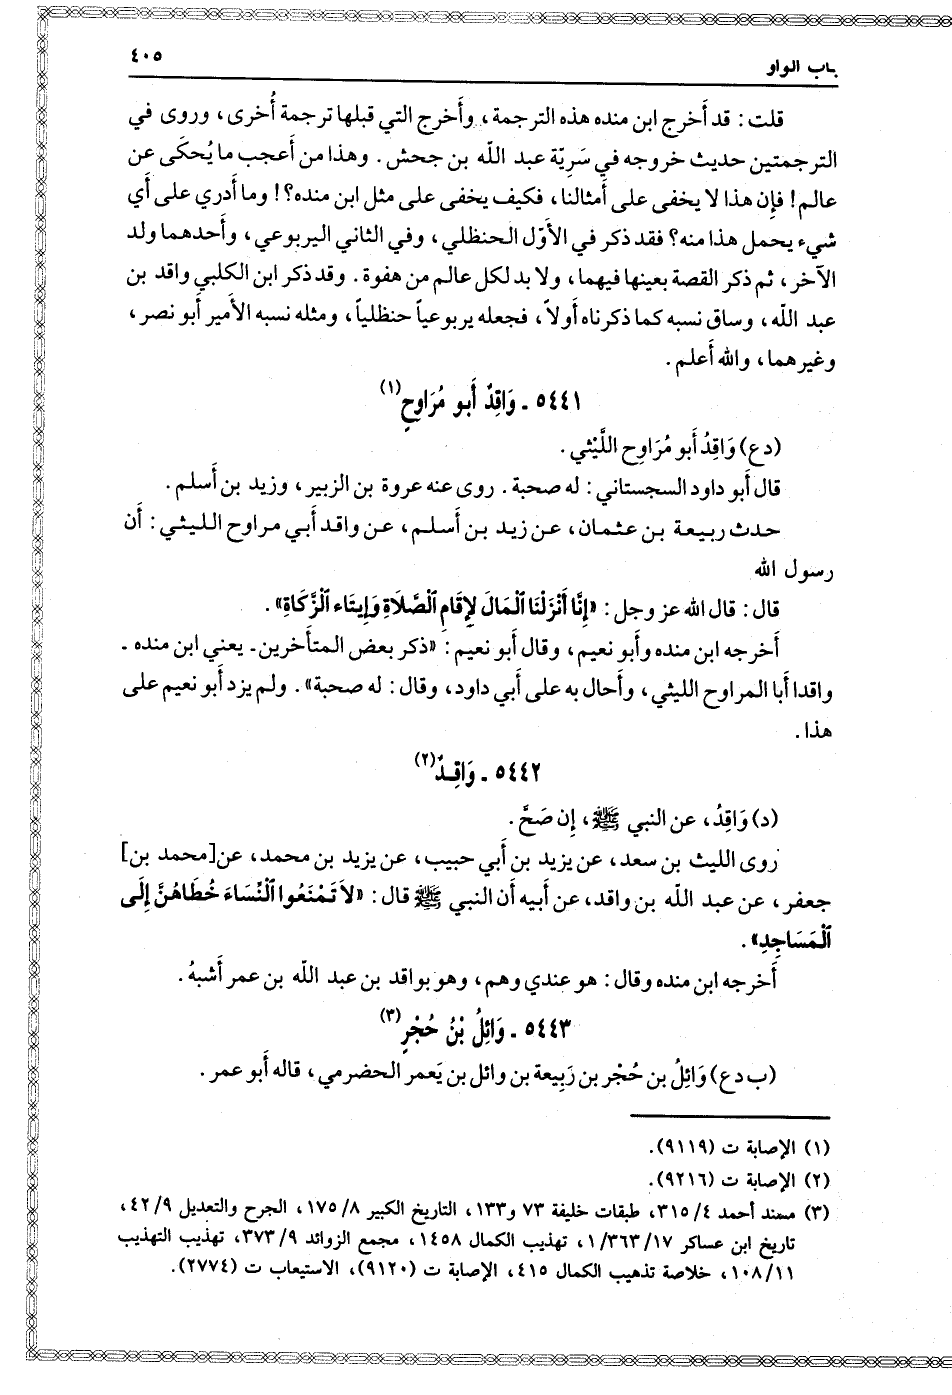 باب الواو ٤٠٥
قلت: قد أَخرج ابن منده هذه الترجمة، وأَخرج التي قبلها ترجمة أُخرى، وروى في
الترجمتين حديث خروجه في سَرِيّة عبد الله بن جحش. وهذا من أَعجب ما يُحكَى عن
عالم! فإِن هذا لا يخفى على أَمثالنا، فكيف يخفى على مثل ابن منده؟! وما أَدري على أَي
شيء يحمل هذا منه؟ فقد ذكر في الأَوّل الحنظلي، وفي الثاني اليربوعي، وأَحدهما ولد
الآخر، ثم ذكر القصة بعينها فيهما، ولا بد لكل عالم من هفوة. وقد ذكر ابن الكلبي واقد بن
عبد الله، وساق نسبه كما ذكرناه أَولاً، فجعله يربوعياً حنظلياً، ومثله نسبه الأَمير أَبو نصر،
وغيرهما، والله أَعلم.
٥٤٤١ ـ وَاقِدٌ أَبو مُرَاوِحٍ(١)
(دع) وَاقِدُ أَبو مُرَاوِح اللَّيْثي.
قال أَبو داود السجستاني: له صحبة. روى عنه عروة بن الزبير، وزيد بن أَسلم.
حدث ربيعة بن عثمان، عن زيد بن أَسلم، عن واقد أَبي مراوح الليثي: أَن
رسول الله
قال: قال الله عز وجل: «إِنَّا أَنْزَلْنَا ٱلْمَالَ لإِقَامِ ٱلصَّلَاةِ وَإِيتَاءِ ٱلزَّكَاةِ».
أَخرجه ابن منده وأَبو نعيم، وقال أَبو نعيم: «ذكر بعض المتأَخرين ـ يعني ابن منده ـ
واقدا أَبا المراوح الليثي، وأَحال به على أَبي داود، وقال: له صحبة». ولم يزد أَبو نعيم على
هذا.
٥٤٤٢ ـ وَاقِدٌ(٢)
(د) وَاقِدُ، عن النبي ﷺ، إِن صَحَّ.
روى الليث بن سعد، عن يزيد بن أَبي حبيب، عن يزيد بن محمد، عن[محمد بن]
جعفر، عن عبد الله بن واقد، عن أَبيه أَن النبي ﷺ قال: «لاَ تَمْنَعُوا ٱلنِّسَاءَ خُطَاهُنَّ إِلَى
ٱلْمَسَاجِدِ».
أَخرجه ابن منده وقال: هو عندي وهم، وهو بواقد بن عبد الله بن عمر أَشبهُ.
٥٤٤٣ ـ وَائِلُ بْنُ حُجْرٍ(٣)
(ب دع) وَائِلُ بن حُجْر بن رَبِيعة بن وائل بن يَعمر الحضرمي، قاله أَبو عمر.
(١) الإصابة ت (٩١١٩).
(٢) الإصابة ت (٩٢١٦).
(٣) مسند أحمد ٣١٥/٤، طبقات خليفة ٧٣ و١٣٣، التاريخ الكبير ١٧٥/٨، الجرح والتعديل ٤٢/٩،
تاريخ ابن عساكر ١/٣٦٣/١٧، تهذيب الكمال ١٤٥٨، مجمع الزوائد ٣٧٣/٩، تهذيب التهذيب
١٠٨/١١، خلاصة تذهيب الكمال ٤١٥، الإصابة ت (٩١٢٠)، الاستيعاب ت (٢٧٧٤).